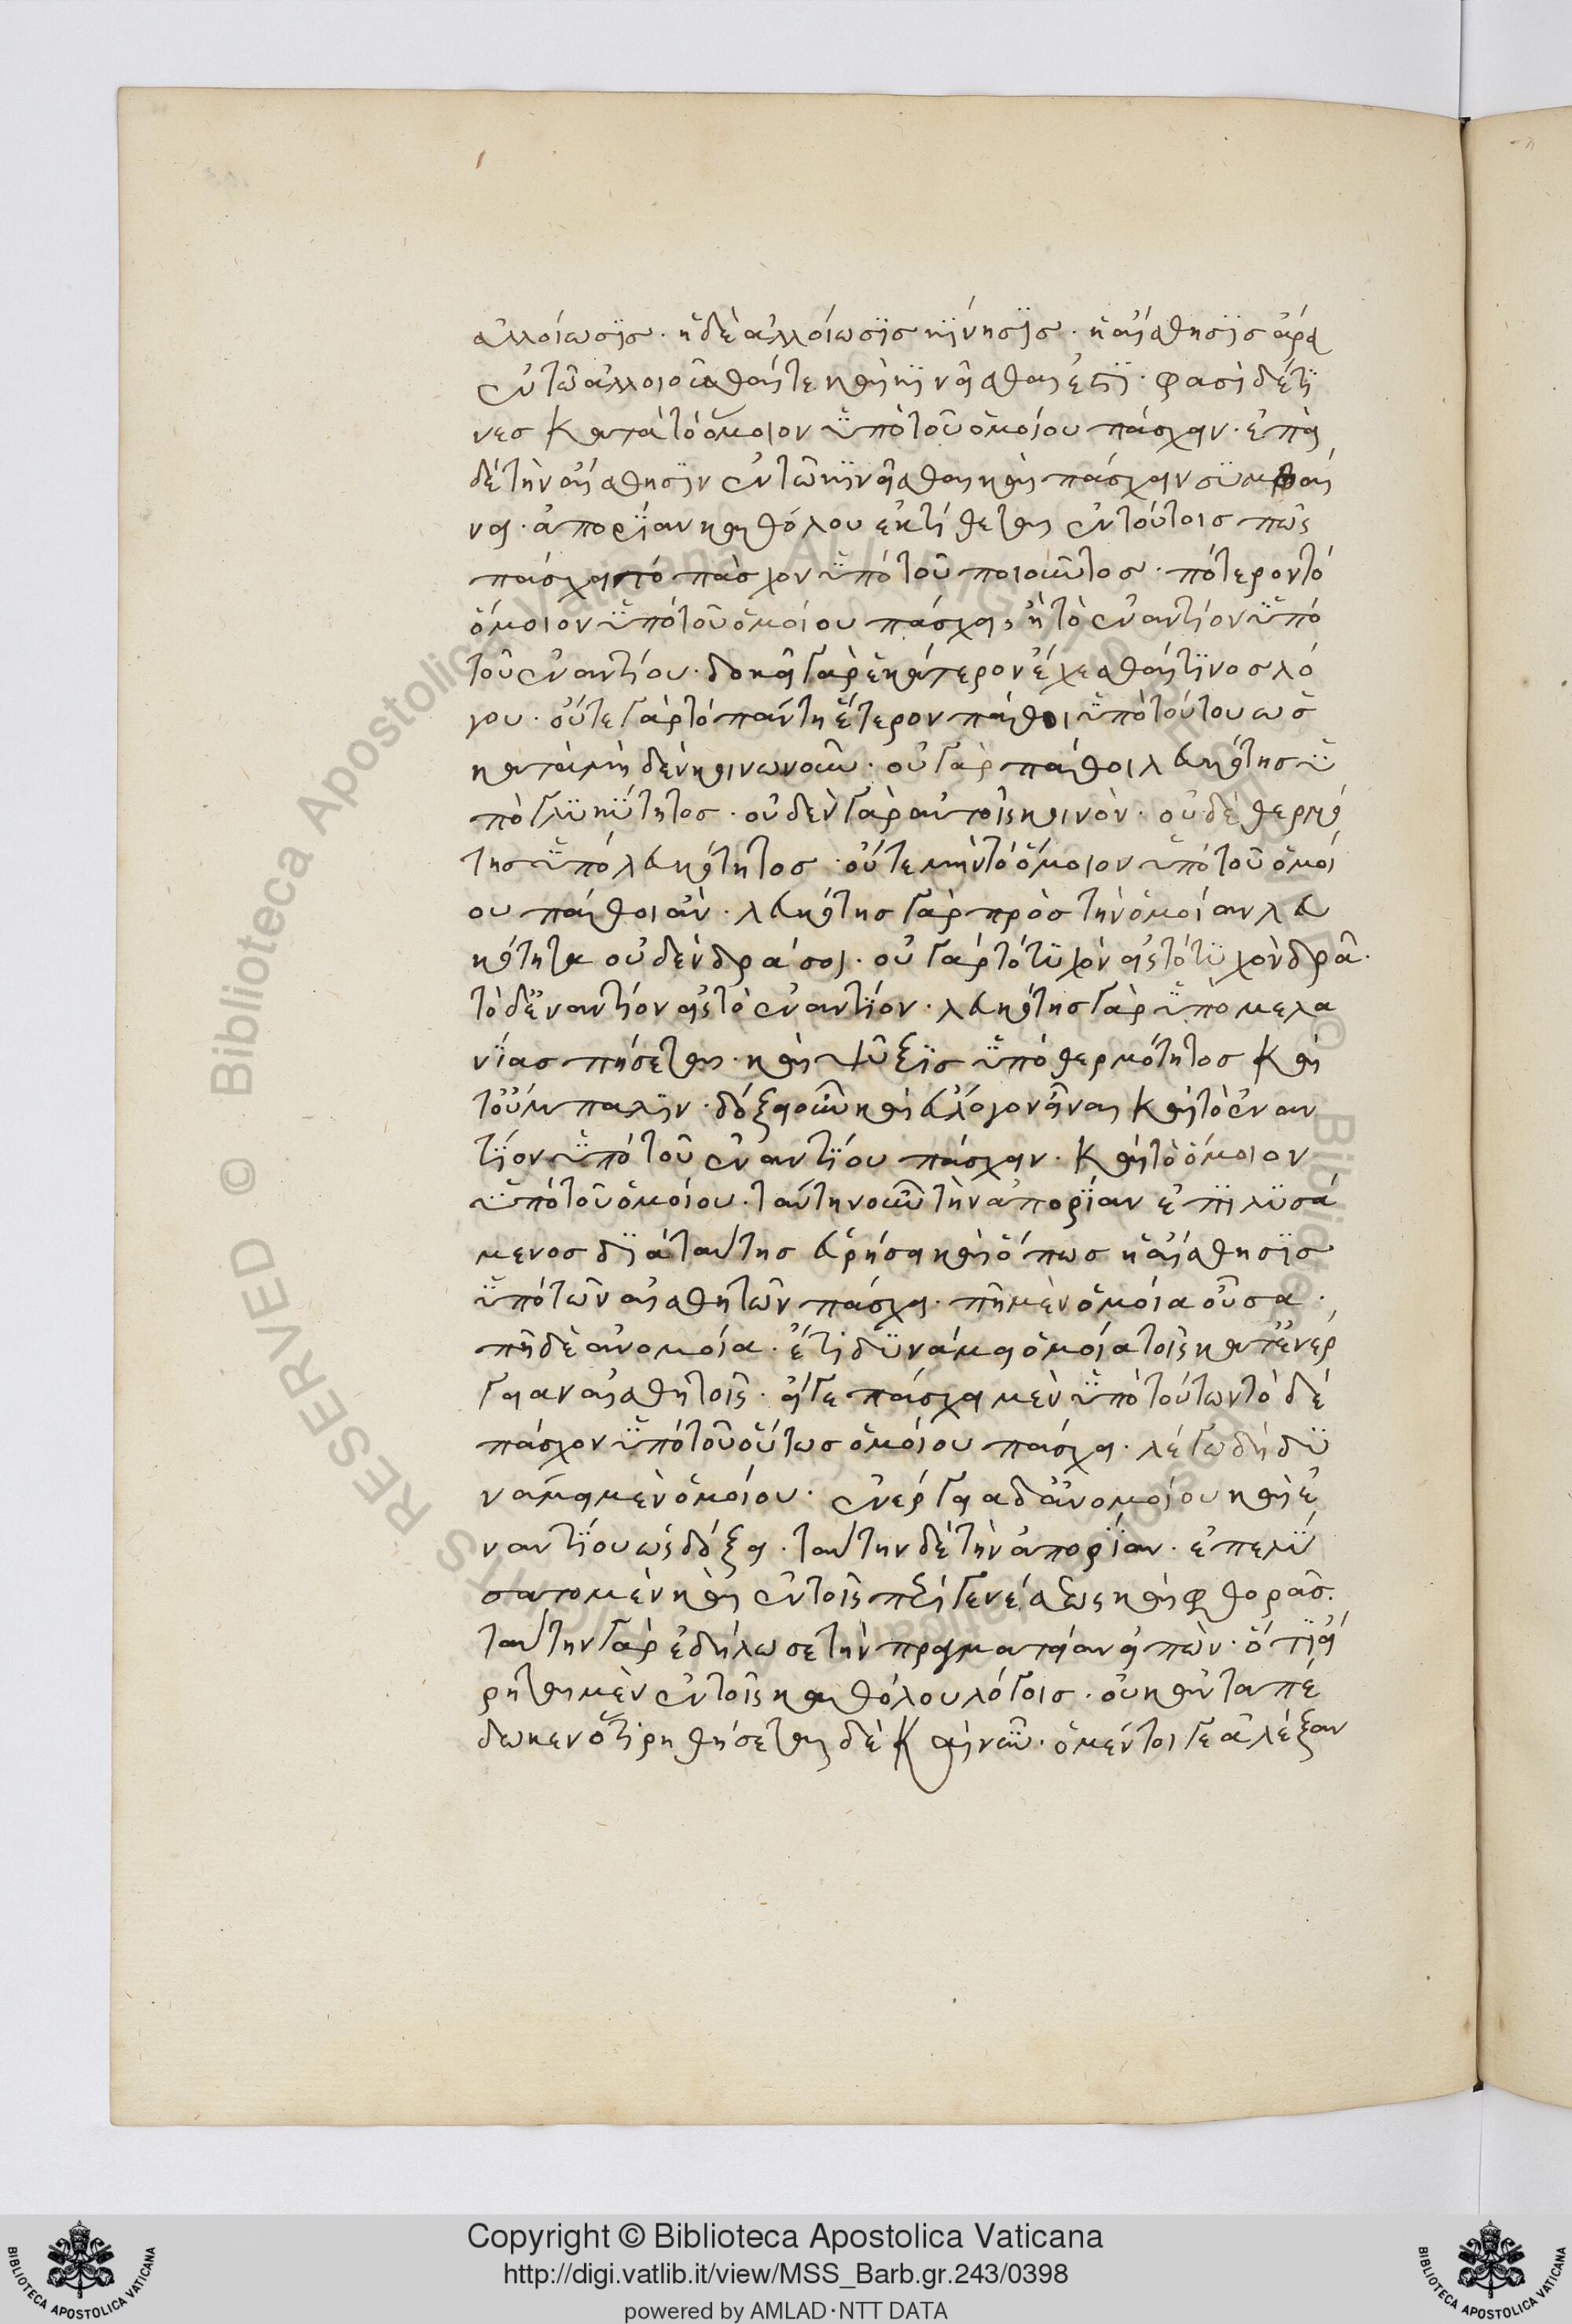 ἀλλοίωσϊς. ἡ δὲ ἀλλοίωσϊς κίνησϊς. ἡ αἴσθησϊς ἄρα
ἐν τῶ ἀλλοιοῦσθαί τε καὶ κϊνεῖσθαι ἐστΐ. φασὶ δέ τϊ
νες κατὰ τὸ ὅμοιον ὑπὸ τοῦ ὁμοίου πάσχειν. ἐπεὶ
δὲ τὴν αἴσθησϊν ἐν τῶ κϊνεῖσθαι καὶ πάσχειν συμβαί
νει. ἀπορΐαν καθόλου ἐκτίθεται ἐν τούτοις πῶς
πάσχει τὸ πάσχον ὑπὸ τοῦ ποιοῦντος. πότερον τὸ
ὅμοιον ὑπὸ τοῦ ὁμοίου πάσχει, ἢ τὸ ἐναντίον ὑπὸ
τοῦ ἐναντίου. δοκεῖ γὰρ ἑκάτερον ἔχεσθαί τϊνος λό
γου. οὔτε γὰρ τὸ πάντη ἕτερον πάθοι ὑπὸ τούτου ὡ ἃ
κατὰ μηδὲν κοινωνοῦν. οὐ γὰρ πάθοι λευκότης ὑ
πὸ γλυκΰτητος. οὐδὲν γὰρ αὐτοῖς κοινὸν. οὐδὲ θερμό
της ὑπὸ λευκότητος. οὔτε μὴν τὸ ὅμοιον ὑπὸ τοῦ ὁμοί
ου πάθοι ἂν. λευκότης γὰρ πρὸς τὴν ὁμοίαν λευ
κότητα οὐδὲν δράσοι. οὐ γὰρ τὸ τϋχὸν εἰς τὸ τϋχὸν δρᾶ.
τὸ δ' ἐναντίον εἰς τὸ ἐναντΐον. λευκότης γὰρ ὑπὸ μελα
νΐας πήσεται. καὶ ψῦξϊς ὑπὸ θερμότητος καὶ
τοὔμπαλϊν. δόξει οὖν καὶ εὔλογον εἶναι καὶ τὸ ἐναν
τΐον ὑπὸ τοῦ ἐναντΐου πάσχειν. καὶ τὸ ὅμοιον
ὑπὸ τοῦ ὁμοίου. ταύτην οὖν τὴν ἀπορΐαν ἐπϊλϋσά
μενος δϊὰ ταύτης εὑρήσει καὶ ὅπως ἡ αἴσθησϊς
ὑπὸ τῶν αἰσθητῶν πάσχει. πῆ μὲν ὁμοία οὖσα.
πῆ δὲ ἀνομοία. ἔτι δϋνάμει ὁμοία τοῖς κατ' ἐνέρ
γειαν αἰσθητοῖς. εἴγε πάσχει μὲν ὑπὸ τούτων τὸ δὲ
πάσχον ὑπὸ τοῦ οὕτως ὁμοίου πάσχει. λέγω δὴ δϋ
νάμει μὲν ὁμοίου. ἐνεργεία δ' ἀνομοίου καὶ ἐ
ναντΐου ὡς δόξει. ταύτην δὲ τὴν ἀπορΐαν. ἐπελΰ
σατο μὲν καὶ ἐν τοῖς περὶ γενέσεως καὶ φθορᾶς.
ταύτην γὰρ ἐδήλωσε τὴν πραγματείαν εἰπὼν. ὅτϊ εἴ
ρηται μὲν ἐν τοῖς καθόλου λόγοις. οὐκ ἀνταπέ
δωκεν ὅτι ῥηθήσεται δὲ καὶ νῦν. ὁ μέντοι γε ἀλέξαν